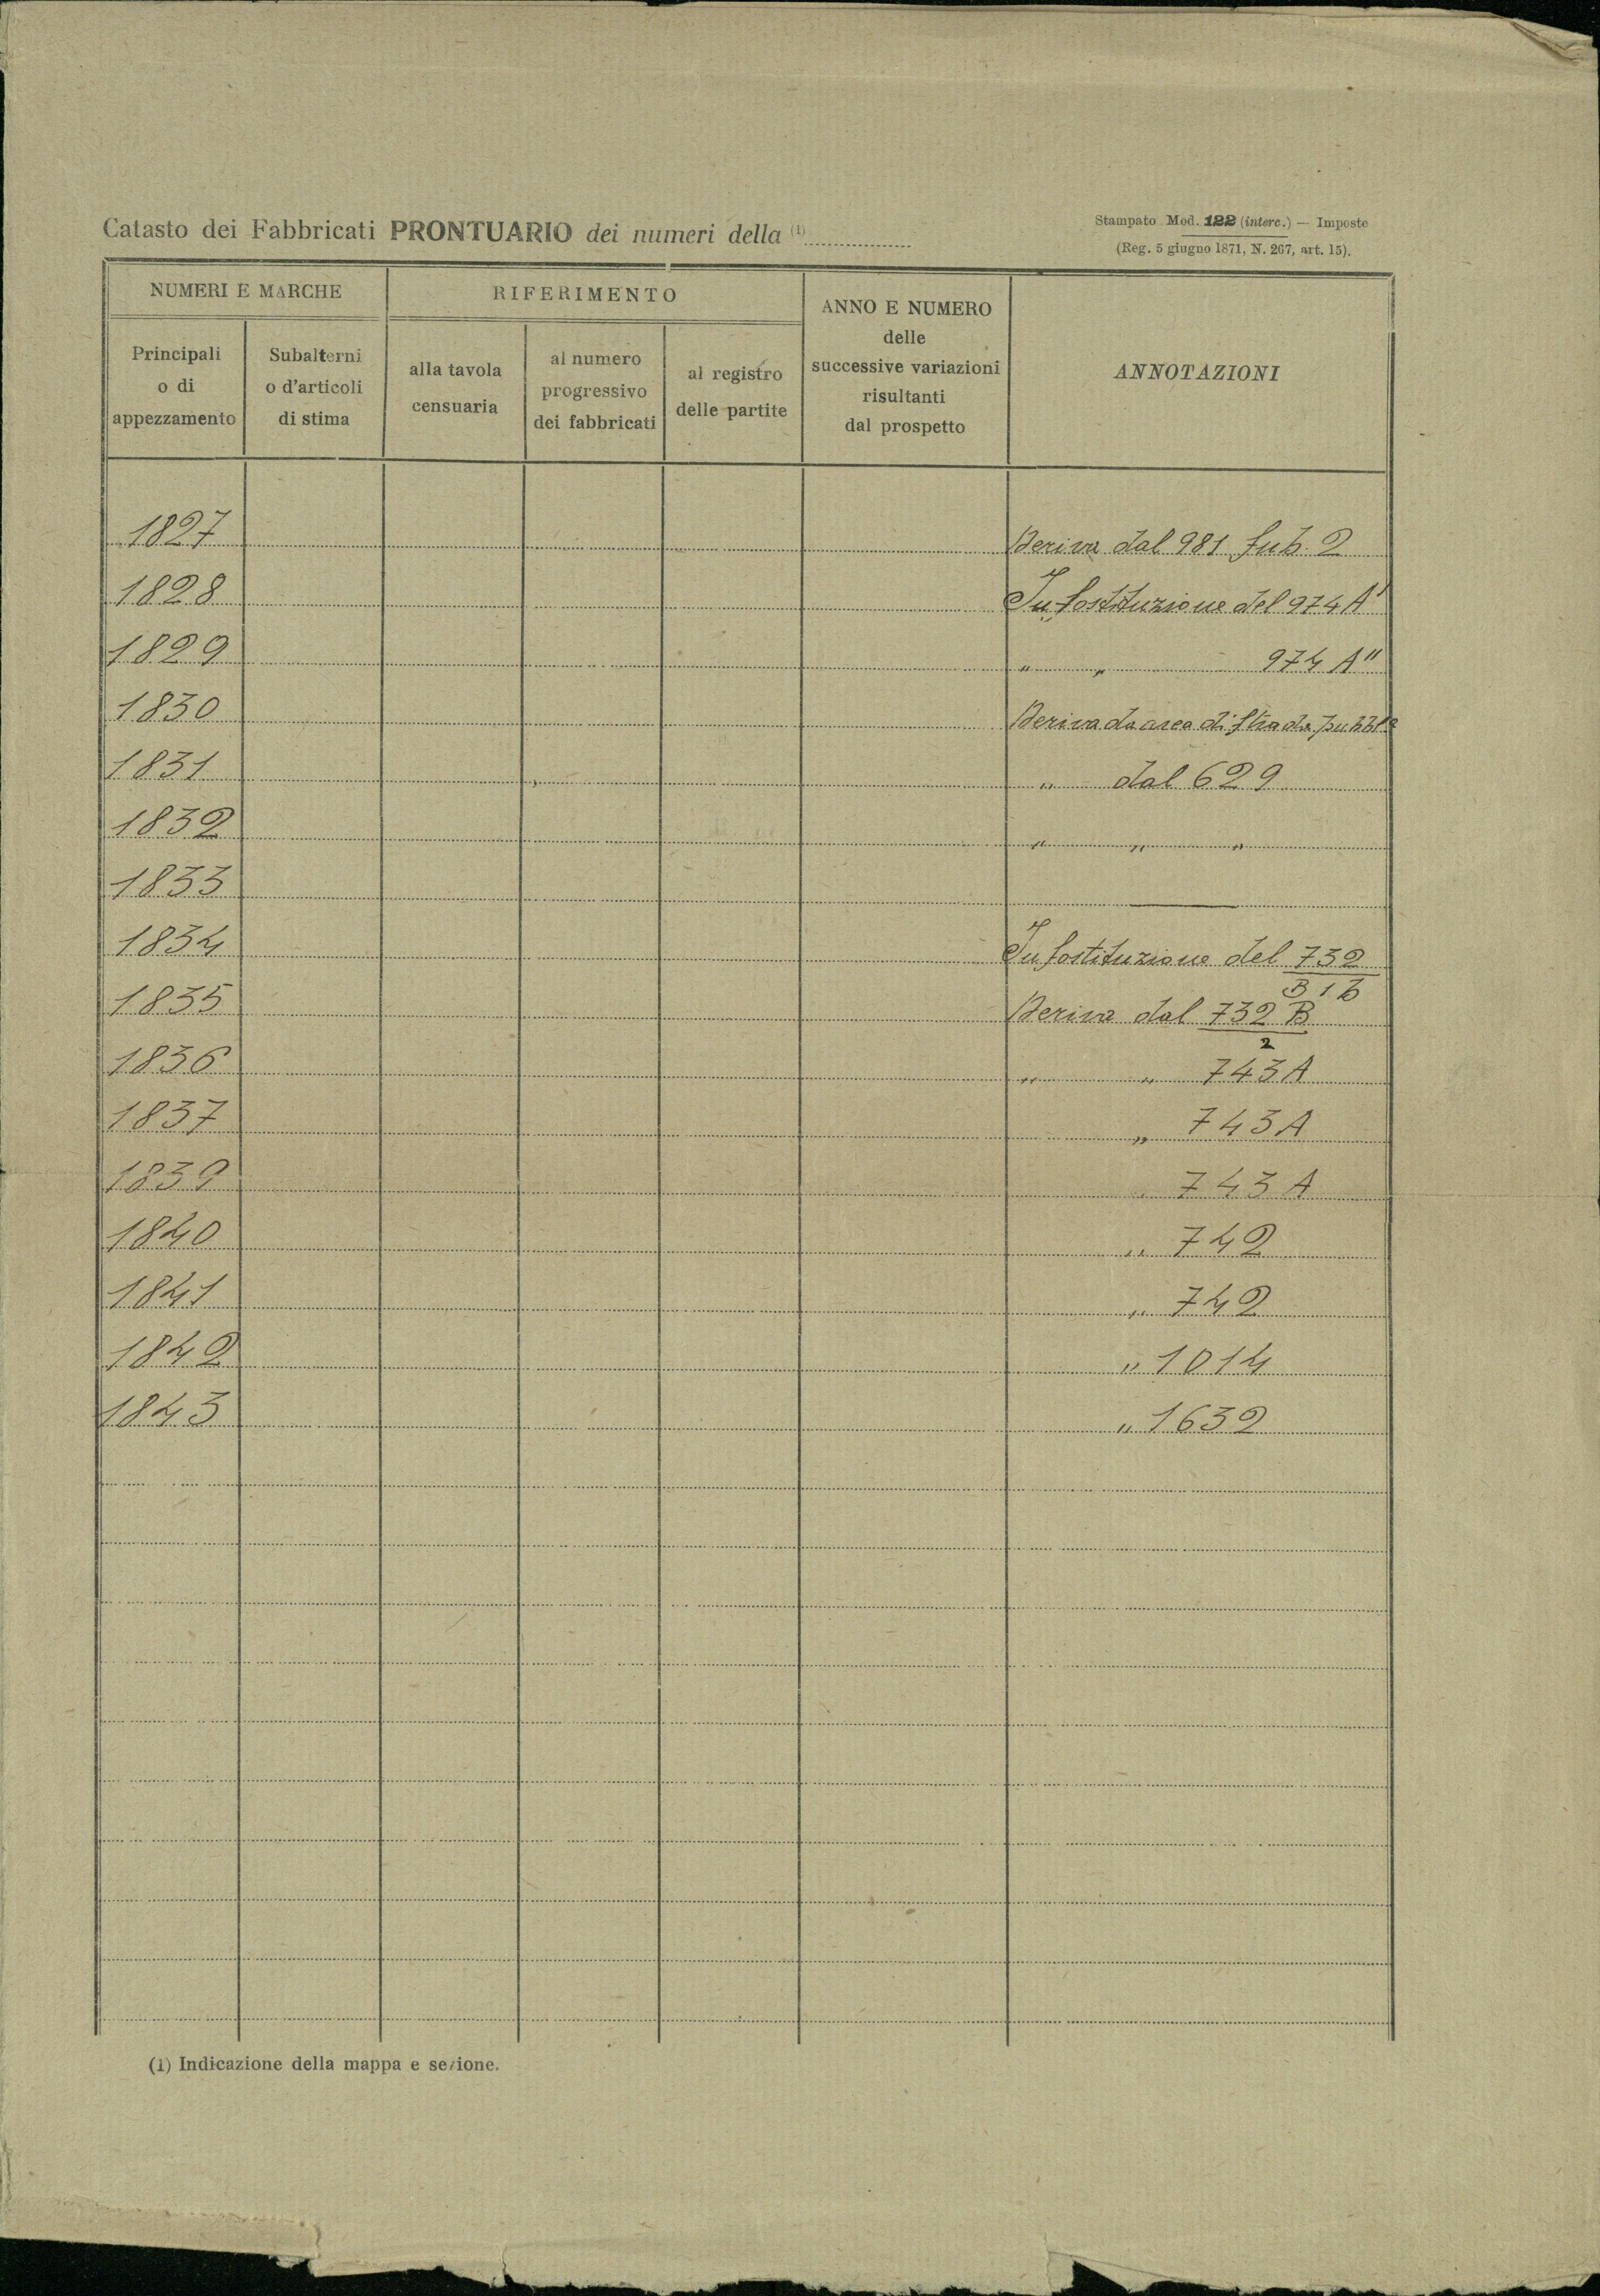 Catasto dei Fabbricati PRONTUARIO dei numeri della (1)
Stampato Mod. 122 (interc.) — Imposte
(Reg. 5 giugno 1871, N. 267, art. 15).
NUMERI E MARCHE
RIFERIMENTO
ANNO E NUMERO
delle
successive variazioni
risultanti
dal prospetto
ANNOTAZIONI
Principali
o di
appezzamento
Subalterni
o d'articoli
di stima
alla tavola
censuaria
al numero
progressivo
dei fabbricati
al registro
delle partite
1827 Deriva dal 981 sub. 2
1828 In sostituzione del 974 A'
1829 " " 974 A"
1830 Deriva da area di strada pubbl.ca
1831 " dal 629
1832 " " "
1833 —
1834 In sostituzione del 732
B 1 b
1835 Deriva dal 732 B
2
1836 " " 743 A
1837 " 743 A
1839 " 743 A
1840 " 742
1841 " 742
1842 " 1014
1843 " 1632
(1) Indicazione della mappa e sezione.